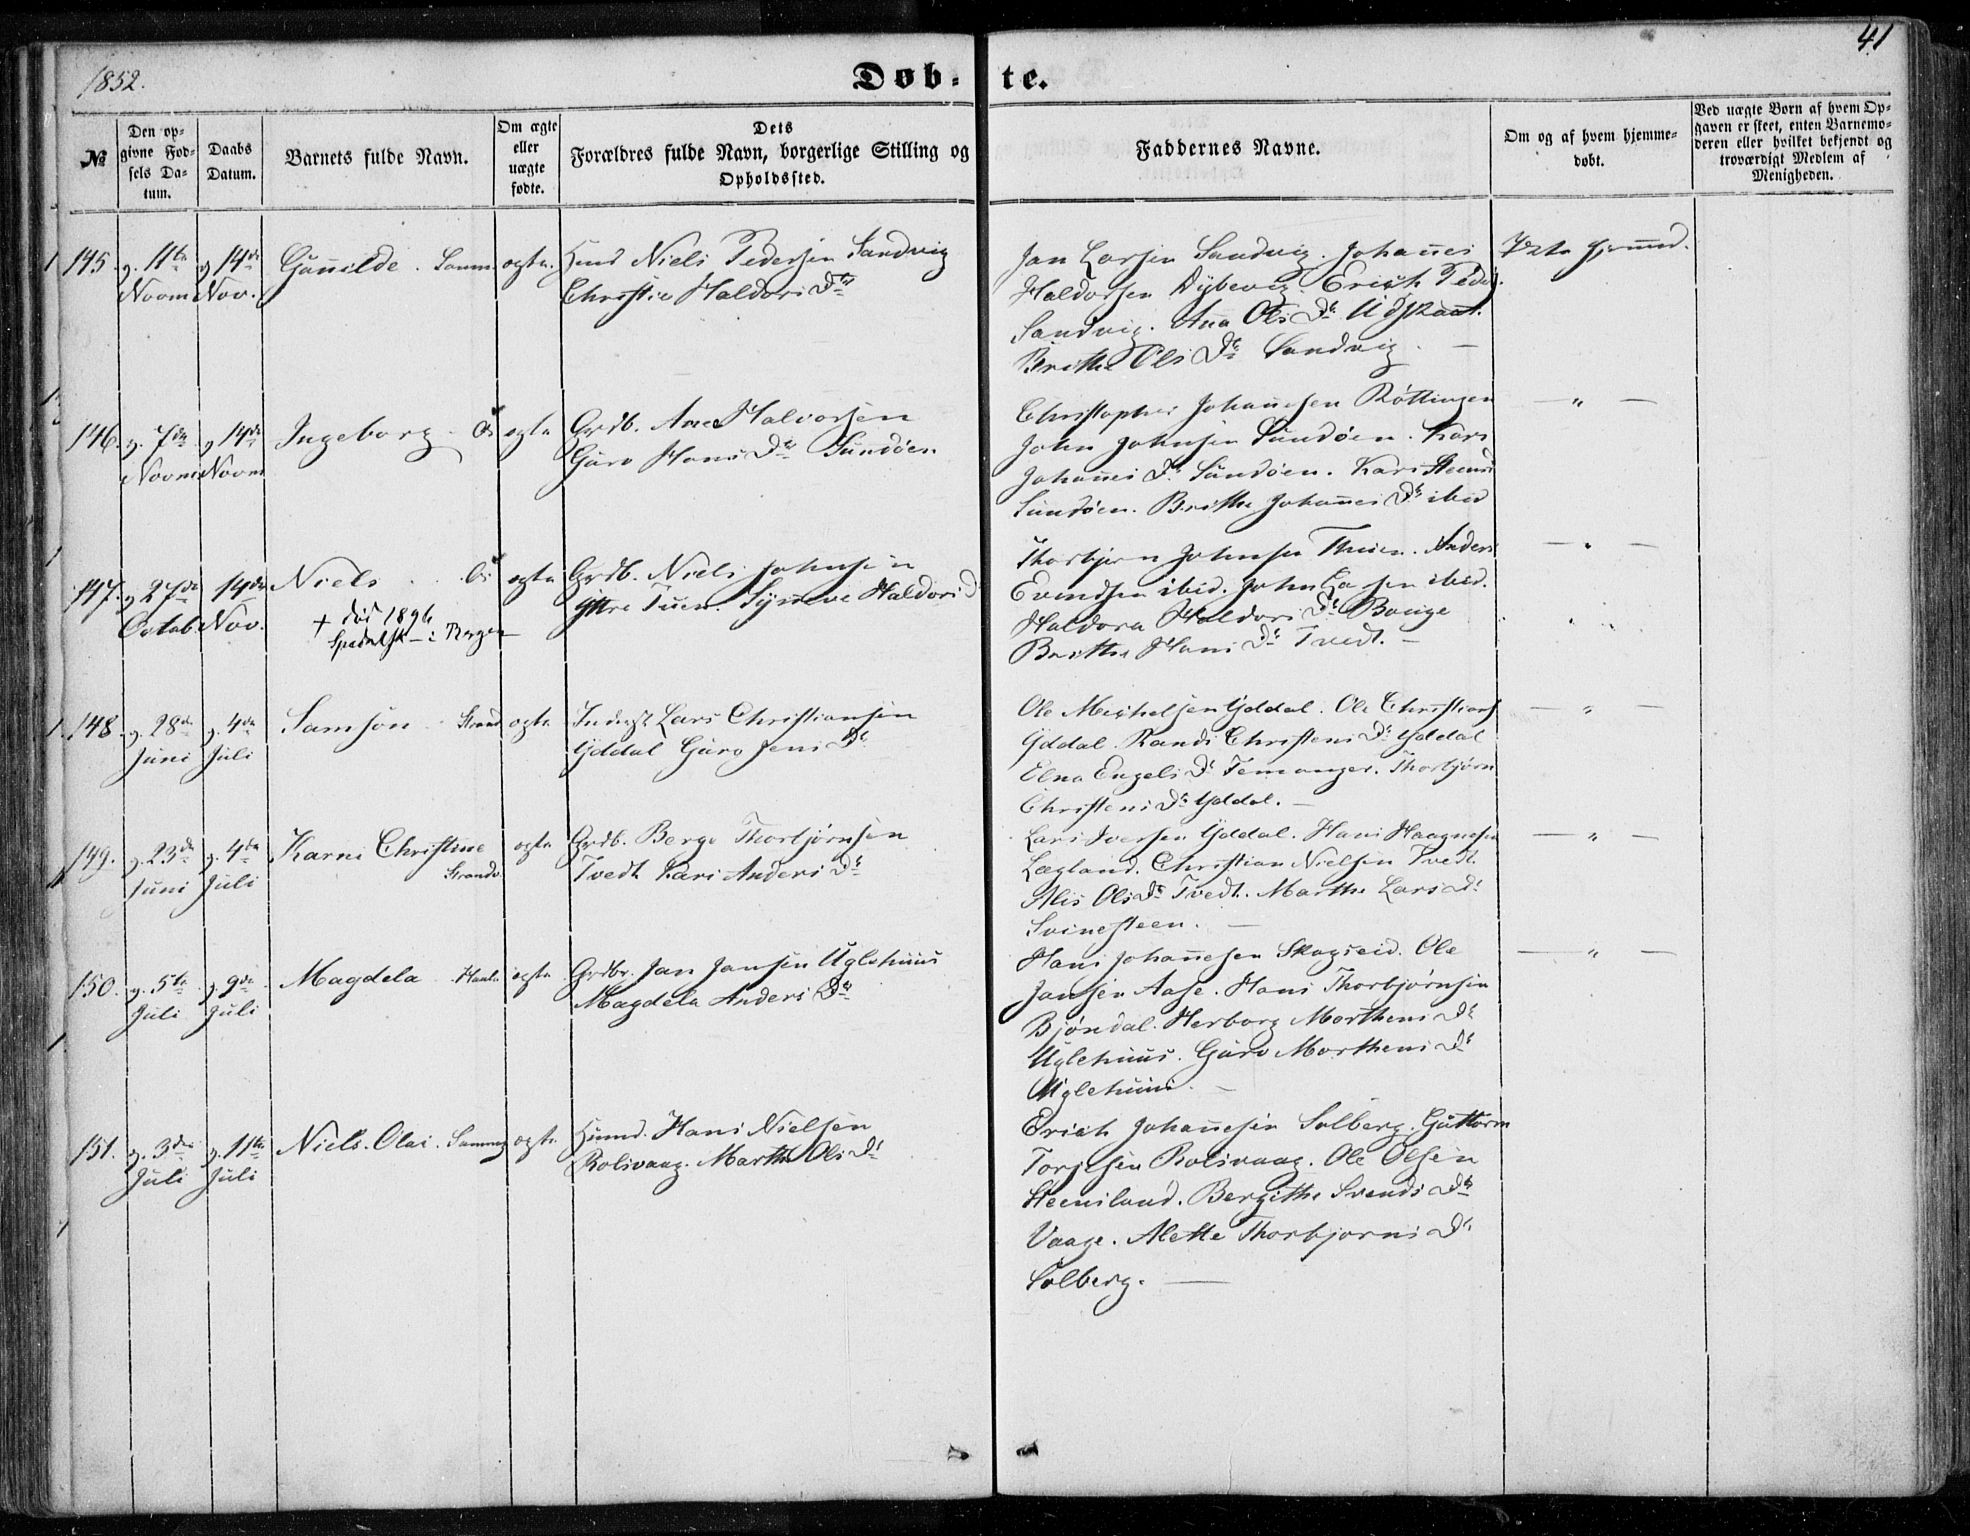 1852.
Døb-te.
41
№
Den op-
givne Fød-
sels Da-
tum.
Daabs
Datum.
Barnets fulde Navn.
Om ægte
eller
uægte
fødte.
Dets
Forældres fulde Navn, borgerlige Stilling og
Opholdssted.
Faddernes Navne.
Om og af hvem hjemme-
døbt.
Ved uægte Børn af hvem Op-
gaven er skeet, enten Barnemo-
deren eller hvilket bekjendt og
troværdigt Medlem af
Menigheden.
145. 11te 14de Gunilde. ægte. Huusm. Niels Pedersen Sandvig
Novm Nov. Christie Haldors Dtr
Jan Larsen Sandvig. Johannes
Haldorsen Dybevig. Erich Peders.
Sandvig. Anna Ols Dtr Udskaat.
Brithe Ols Dtr Sandvig. —
146. g. 7de g. 14de Ingeborg. Os ægte Grdb. Arne Halvorsen
Novm Novm Guro Hans Dtr Sundøen
Christopher Johannesen Røttingen
John Johnsen Sundøen. Kari
Johannes Dr Sundøen. Kari Steens
Sundøen. Brithe Johannes Dr ibid
— " —
147. g 27de 14de Niels Os ægte Grdb. Niels Johnsen
Octob. Nov. Yttre Tuen. Synneve Haldors D
+ død 1896
Spedalsk – i Bergen
Thorbjørn Johnsen Thuen. Anders
Evendsen ibid. John Larsen ibid.
Haldora Haldors Dr Bouge
Brithe Hans Dr Tvedt. —
— " —
148. g. 28de g. 4de Samson Strand ægte Inderst Lars Christiansen
Juni Juli Yddal Guro Jens Dr
Ole Michelsen Yddal. Ole Christians
Yddal. Randi Christens Dr Yddal
Elna Engels Dr Femanger. Thorbjørn
Christens Dr Yddal. —
— " —
149. g. 23de g. 4de Karni Christine ægte Grdb. Berge Thorbjørnsen
Juni Juli Strandv. Tvedt Kari Anders Dr
Lars Iversen Yddal. Hans Haagnesen
Lægland. Christian Nielsen Tvedt.
Alis Ols Dr Tvedt. Marthe Lars Dr
Svinesteen. —
— " —
150. g. 5te g. 9de Magdela ægte Grdbr. Jan Jansen Uglehuus
Juli Juli Magdela Anders Dr
Hans Johannesen Skogseid. Ole
Jansen Aase. Hans Thorbjørnsen
Bjøndal. Herborg Morthens Dr
Uglehuus. Guro Morthens Dr
Uglehuus. —
— " —
151. g. 3die g. 11te Niels Olai. ægte. Huusm. Hans Nielsen
Juli Juli Rolsvaag. Marthe Ols Dr
Erich Johannesen Solberg. Guttorm
Torjesen Rolsvaag. Ole Olsen
Steensland. Bergithe Svends Dr
Vaage. Alette Thorbjørns Dr
Solberg. —